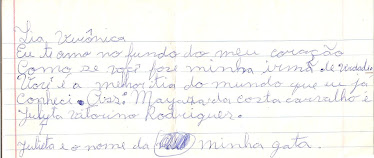 Tia Verônica
Eu te amo no fundo do meu coração
Como se você fose minha irmã de verdade
Você é a melhor tia do mundo que eu já
Conheci. Ass: Mayara da costa carvalho e
Julyta Vitorino Rodrigues.
Julieta é o nome da minha gata.